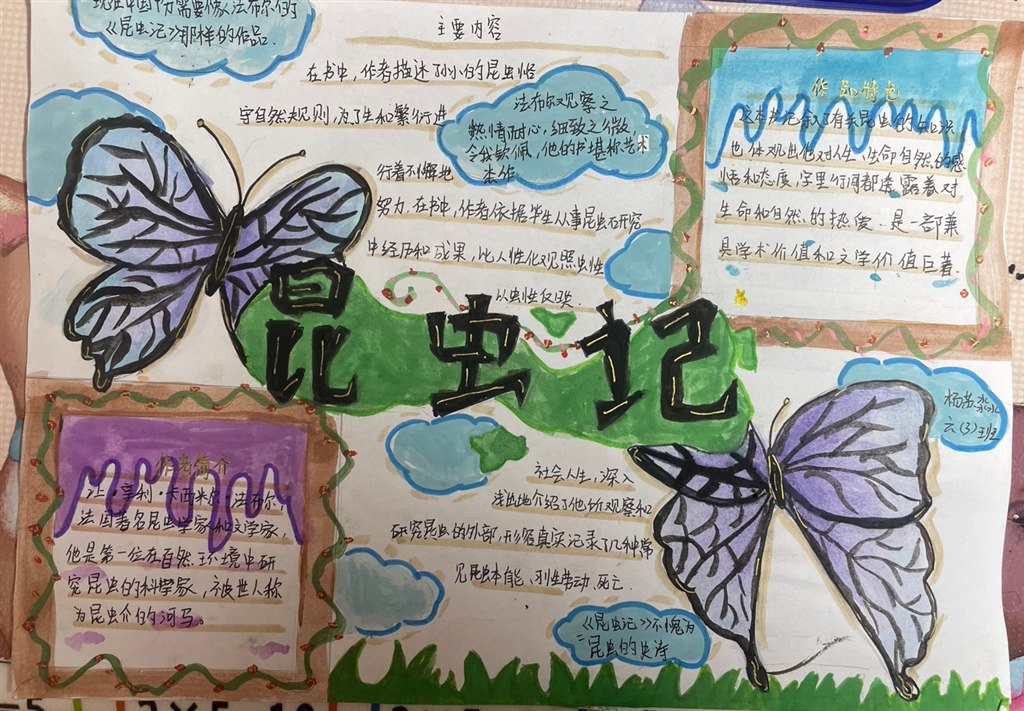 现在中国十分需要像法布尔的
《昆虫记》那样的作品.
主要内容
在书中，作者描述了小小的昆虫恪
守自然规则，为了生和繁衍进
行着不懈地
努力.在书中，作者依据毕生从事昆虫研究
中经历和成果，以人性化观照虫性
以虫性反映
社会人生，深入
浅出地介绍了他所观察和
研究昆虫的外部，形容真实记录了几种常
见昆虫本能、习性劳动、死亡
法布尔观察之
热情耐心，细致之微
令我钦佩，他的书堪称艺术
杰作
作品特色
这本书记录了有关昆虫的知识
也体现出他对人生、生命自然的感
悟和态度，字里行间都透露着对
生命和自然的热爱.是一部兼
具学术价值和文学价值巨著.
昆虫记
作者简介
让·亨利·卡西米尔·法布尔
法国著名昆虫学家和文学家，
他是第一位在自然环境中研
究昆虫的科学家，被世人称
为昆虫介的河马。
六(3)班
《昆虫记》不愧为
“昆虫的史诗